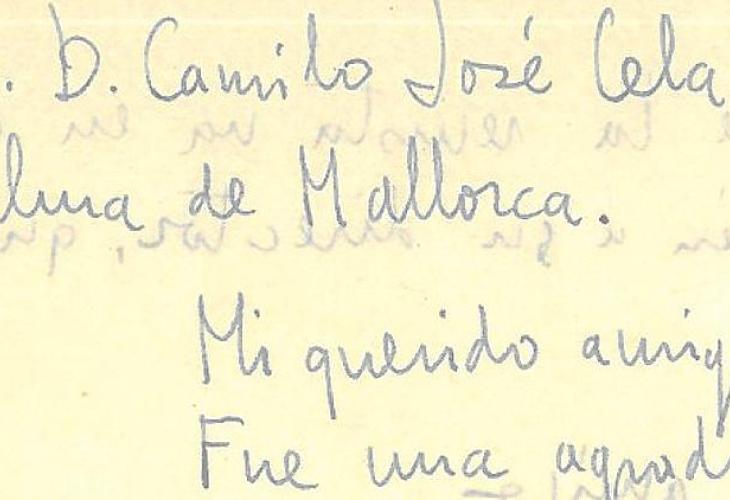 . D. Camilo José Cela
lma de Mallorca.
Mi querido amig
Fue una agrad